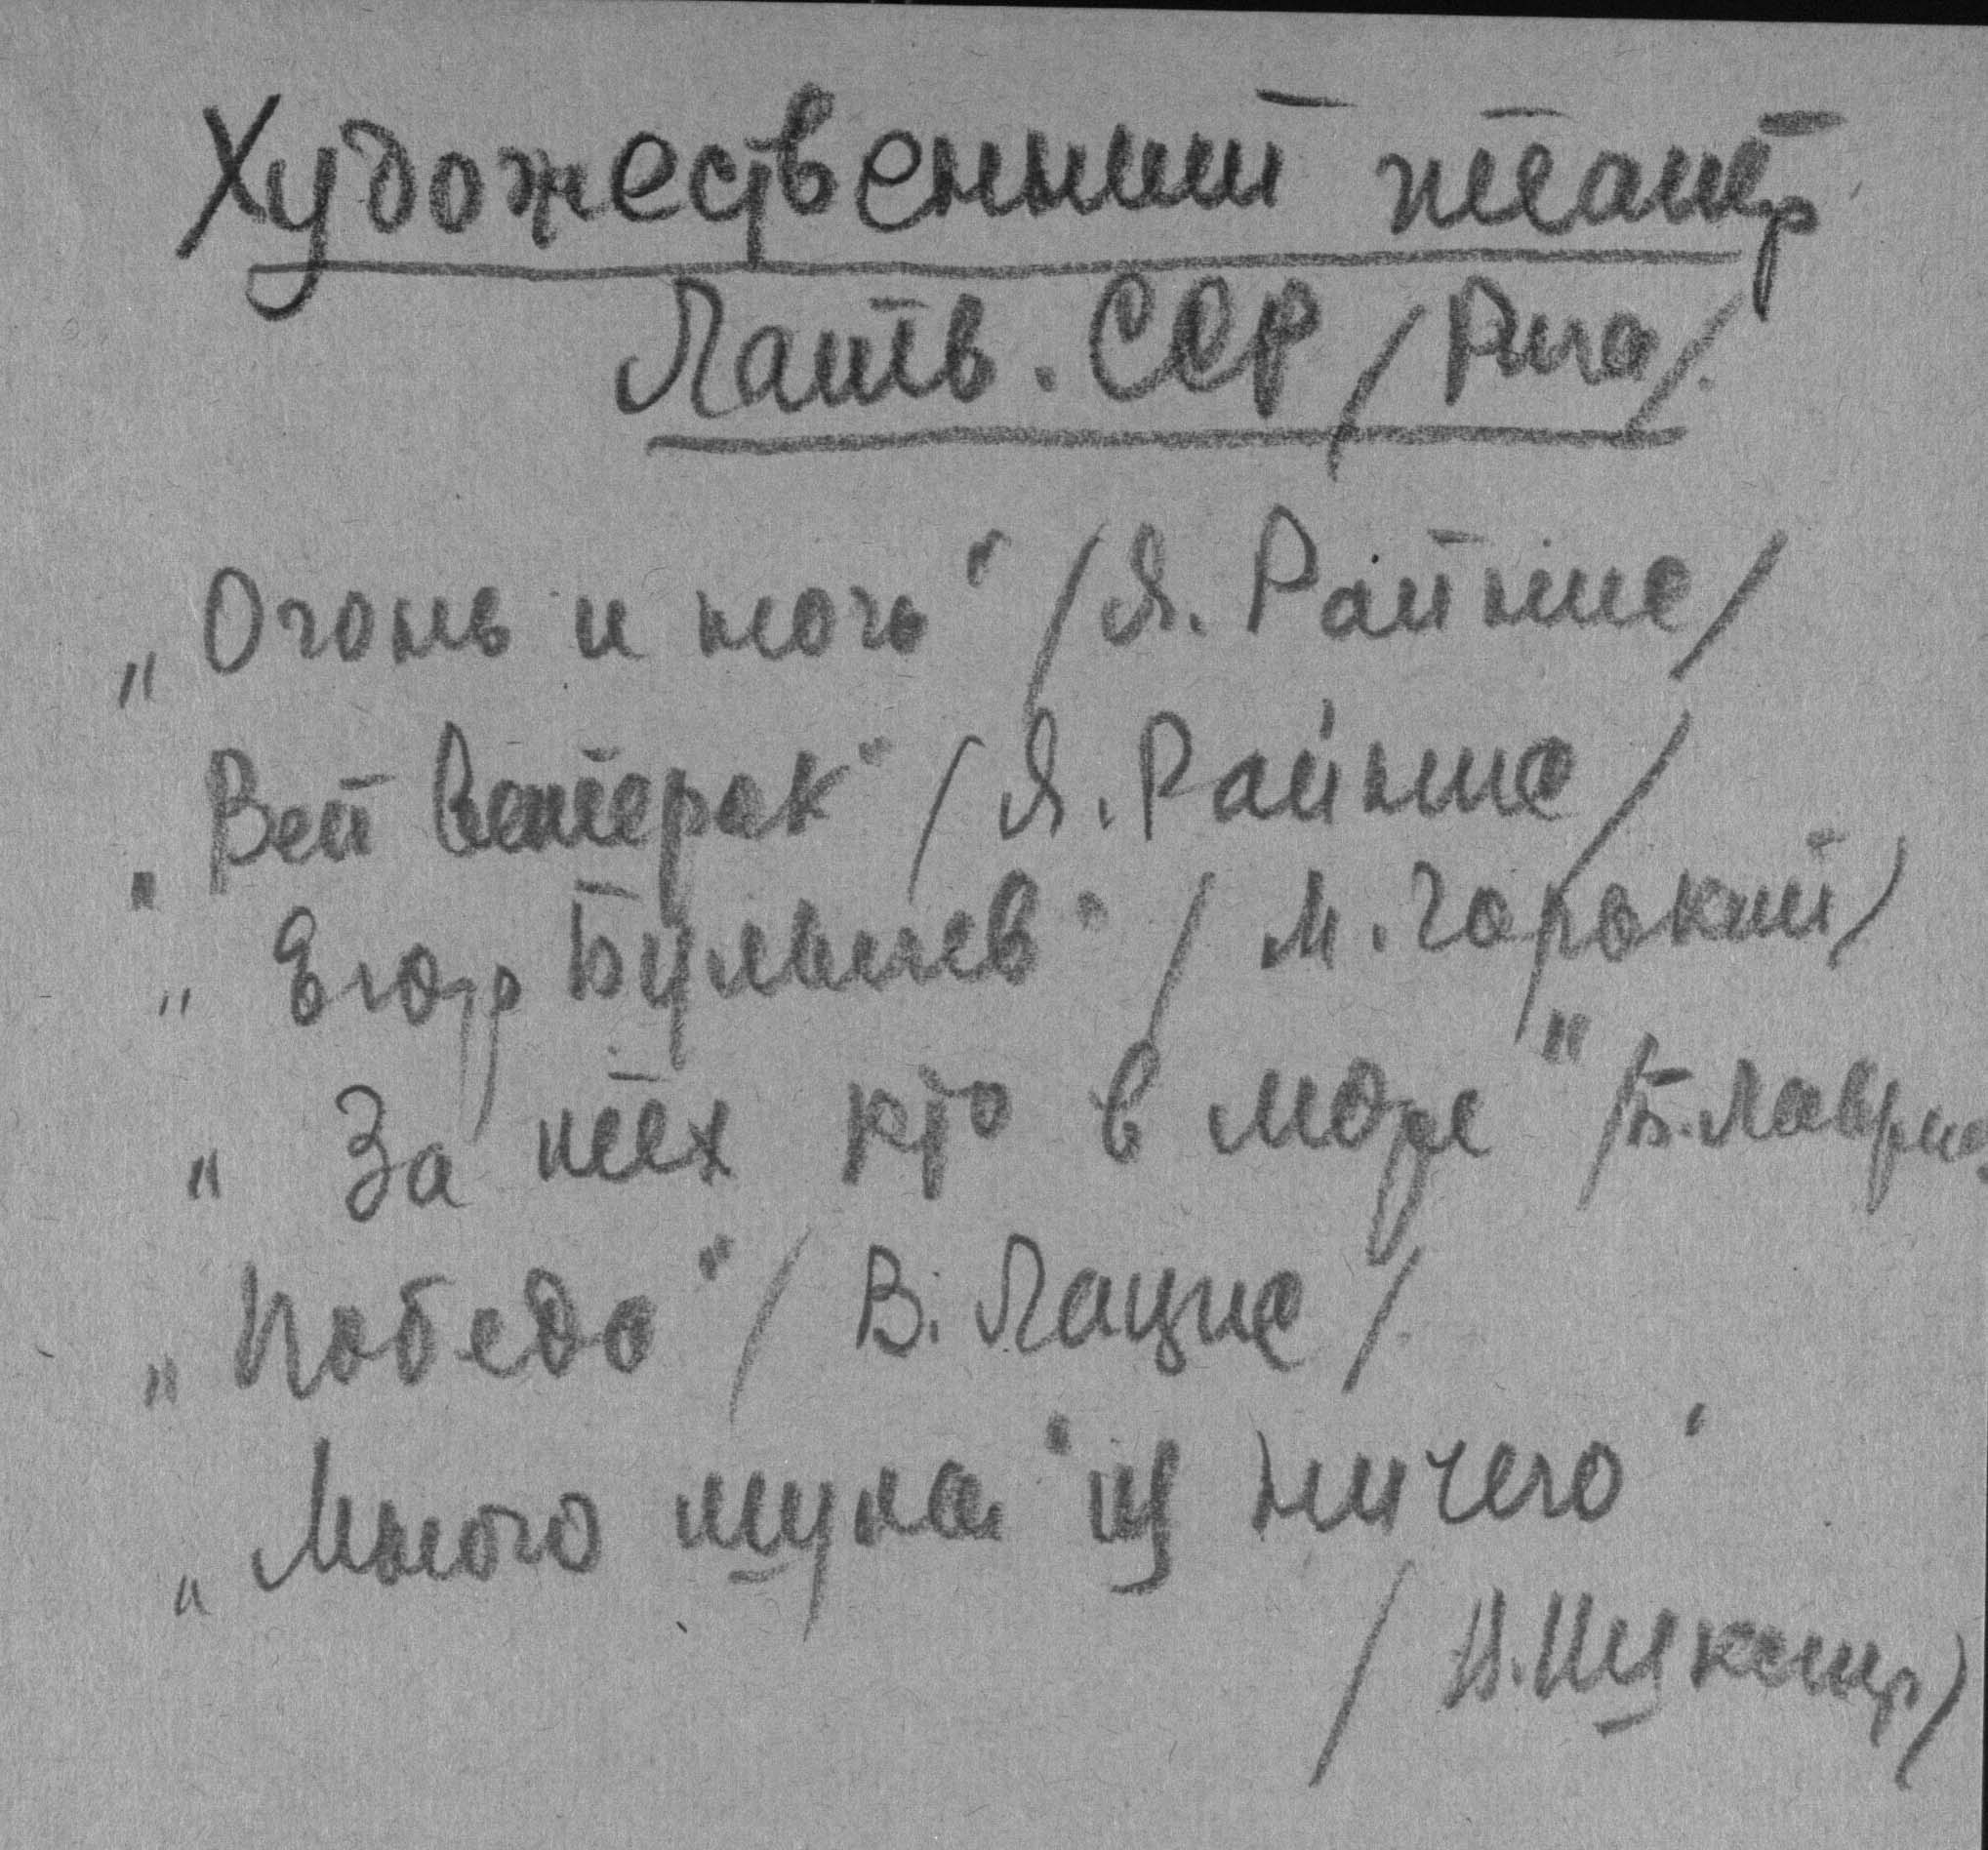 Художественный театр
Латв. ССР /Рига/.
„Огонь и ночь" /Я. Райнис/
„Вей ветерок" /Я. Райнис/
„Егор Булычев" /М. Горький/
„За тех кто в море" /Б. Лаврен
„Победа" /В. Лацис/.
„Много шума из ничего"
/В. Шекспир/